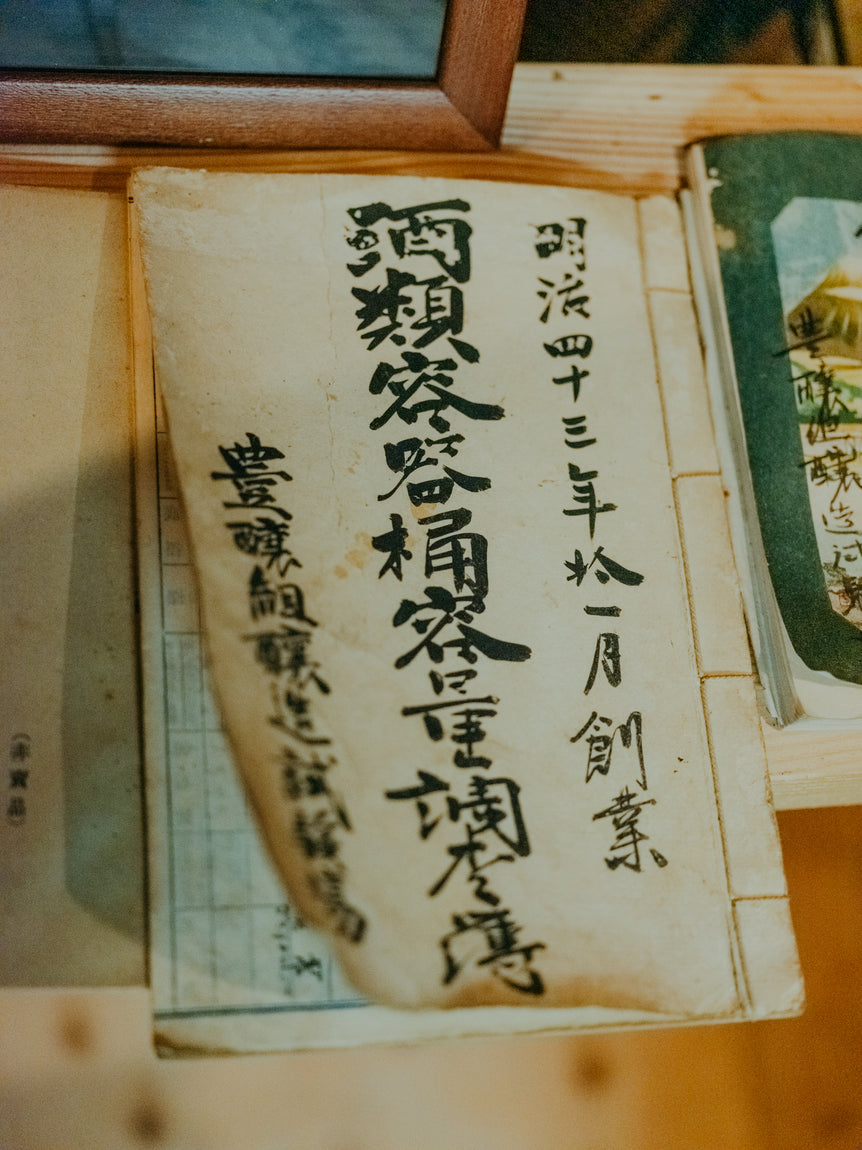 明治四十三年拾一月創業
酒類容器桶容量調查簿
豊醸組醸造試験場
豊醸組醸造試験
(非賣品)